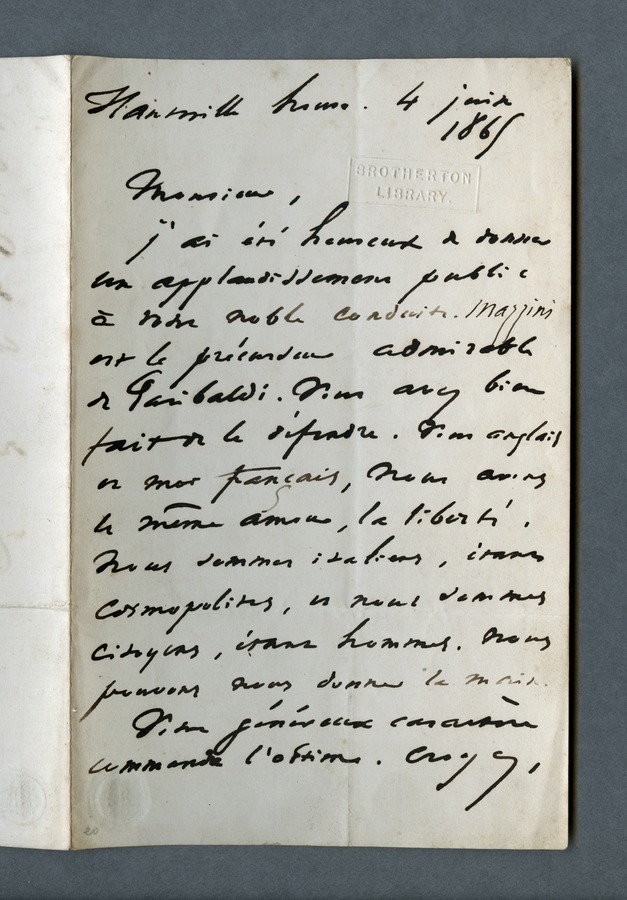 Hauteville house. 4 juin
1865
BROTHERTON
LIBRARY.
Monsieur,
j'ai été heureux de donner
un applaudissement public
à votre noble conduite. Mazzini
est le précurseur admirable
de Garibaldi. Vous avez bien
fait de le défendre. Vous anglais
et moi français, nous avons
le même amour, la liberté.
Nous sommes italiens, étant
cosmopolites, et nous sommes
citoyens, étant hommes. Nous
pouvons nous donner la main.
Votre généreux caractère
commande l'estime. Croyez,
20